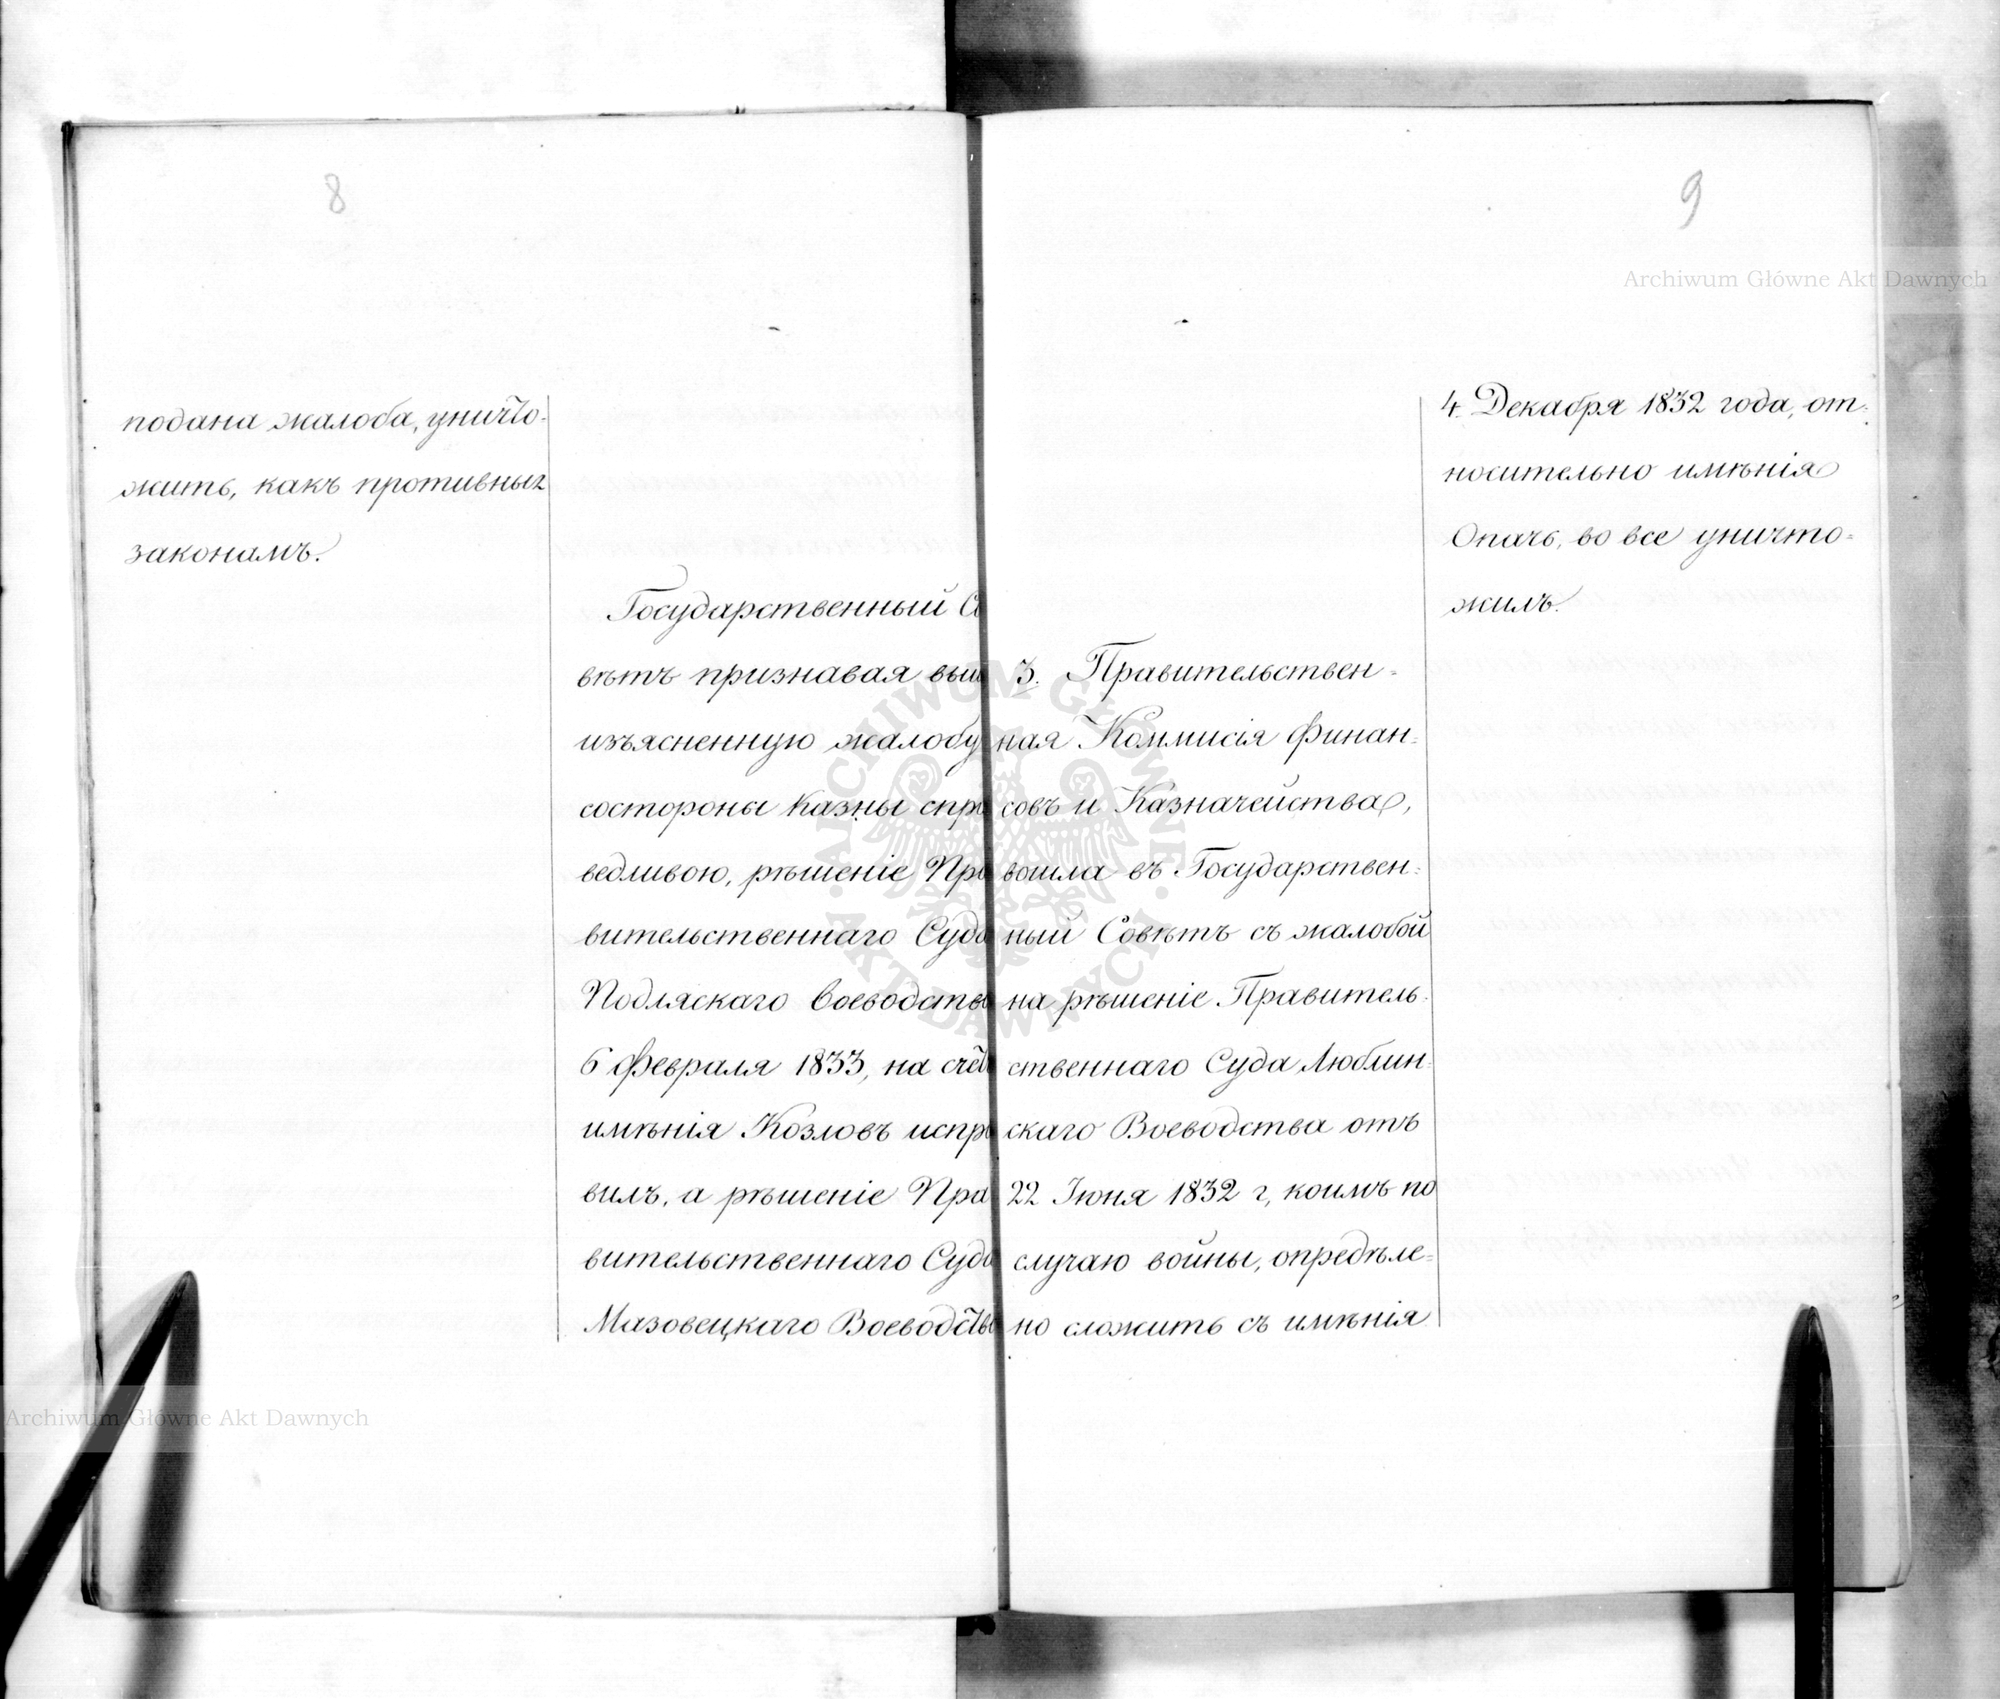 8
подана жалоба, уничто-
жить, какъ противныя
законамъ.
Государственный Со
вѣтъ признавая выше
изъясненную жалобу
состороны Казны спра
ведливою, рѣшеніе Пра
вительственнаго Суда
Подляскаго Воеводства
6 Февраля 1833, на счётъ
имѣнія Козловъ испра
вилъ, а рѣшеніе Пра
вительственнаго Суда
Мазовецкаго Воеводства
9
4. Декабря 1832 года, от-
носительно имѣнія
Опачь, во все уничто=
жилъ.
3. Правительствен=
ная Коммисія Финан-
совъ и Казначейства,
вошла въ Государствен-
ный Совѣтъ съ жалобой
на рѣшеніе Правитель-
ственнаго Суда Люблин-
скаго Воеводства отъ
22 Іюня 1832 г, коимъ по
случаю войны, опредѣле=
но сложить съ имѣнія
Archiwum Główne Akt Dawnych
Archiwum Główne Akt Dawnych
ARCHIWUM GŁÓWNE · AKT DAWNYCH ·